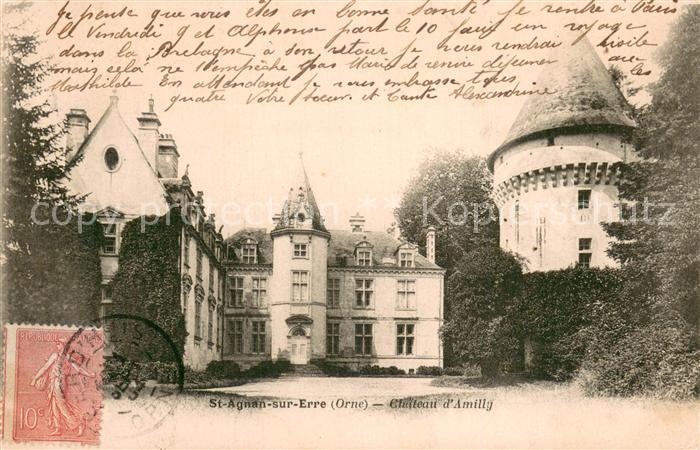 Je pense que vous êtes en bonne santé je rentre à Paris
le Vendredi 9 et Alphonse part le 10 faire un voyage
dans la Bretagne à son retour je vous rendrai visite
mais celà ne l'empêche pas Marie de venir déjeuner avec les
Mathilde En attendant je vous embrasse tous
quatre Votre soeur et Tante Alexandrine
copyright protection Kopierschutz
REPUBLIQUE FRANÇAISE
10c
POSTES
St-Agnan-sur-Erre (Orne) — Château d'Amilly